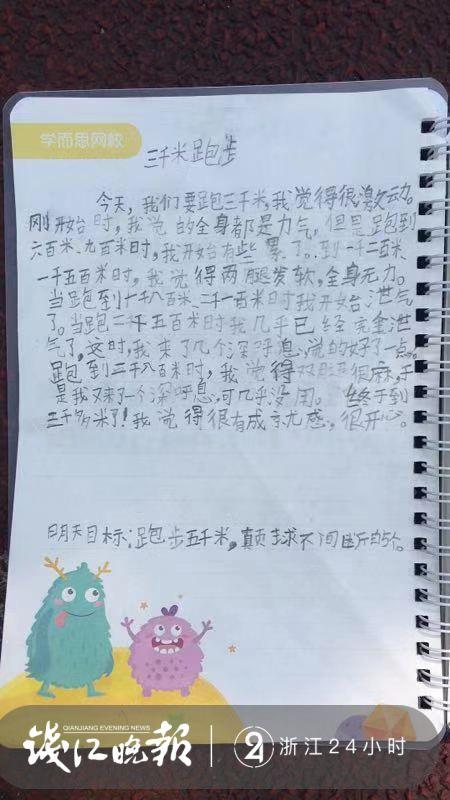 学而思网校
三千米跑步
今天，我们要跑三千米，我觉得很激动。
刚开始时，我觉的全身都是力气，但是跑到
六百米、九百米时，我开始有些累了。到一千二百米
一千五百米时，我觉得两腿发软，全身无力。
当跑到一千八百米、二千一百米时我开始泄气
了。当跑二千五百米时我几乎已经完全泄
气了，这时，我来了几个深呼吸，觉的好了一点。
跑到二千八百米时，我觉得双腿很麻，于
是我又来了一个深呼吸，可几乎没用。终于到
三千多米了！我觉得很有成京尤感，很开心。
明天目标：跑步五千米，颠球不间断的5个。
钱江晚报
QIANJIANG EVENING NEWS
24
浙江24小时